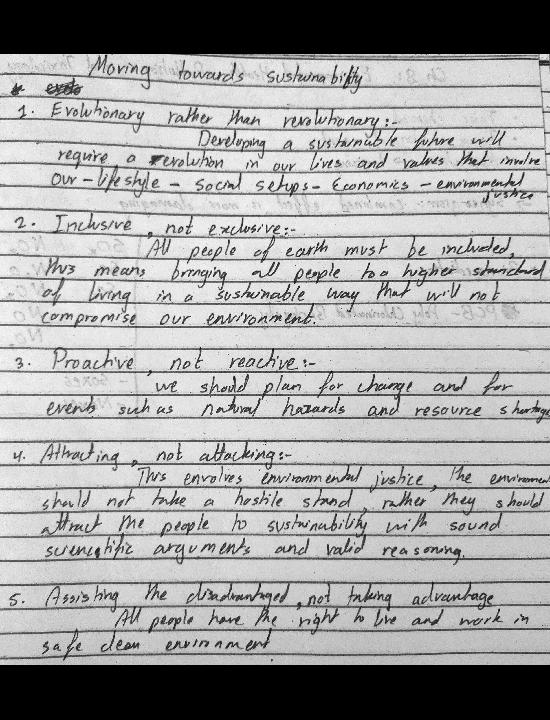 Moving towards sustainability
1. Evolutionary rather than revolutionary:-
Developing a sustainable future will
require a revolution in our lives and values that involve
our - lifestyle - social setups - Economics - environmental
justice
2. Inclusive, not exclusive:-
All people of earth must be included,
this means bringing all people to a higher standard
of living in a sustainable way that will not
compromise our environment.
3. Proactive, not reactive:-
we should plan for change and for
events such as natural hazards and resource shortage
4. Attracting, not attacking:-
This envolves environmental justice, the environmen
should not take a hostile stand, rather they should
attract the people to sustainability with sound
sciencetific arguments and valid reasoning.
5. Assisting the disadvantaged, not taking advantage
All people have the right to live and work in
safe clean environment